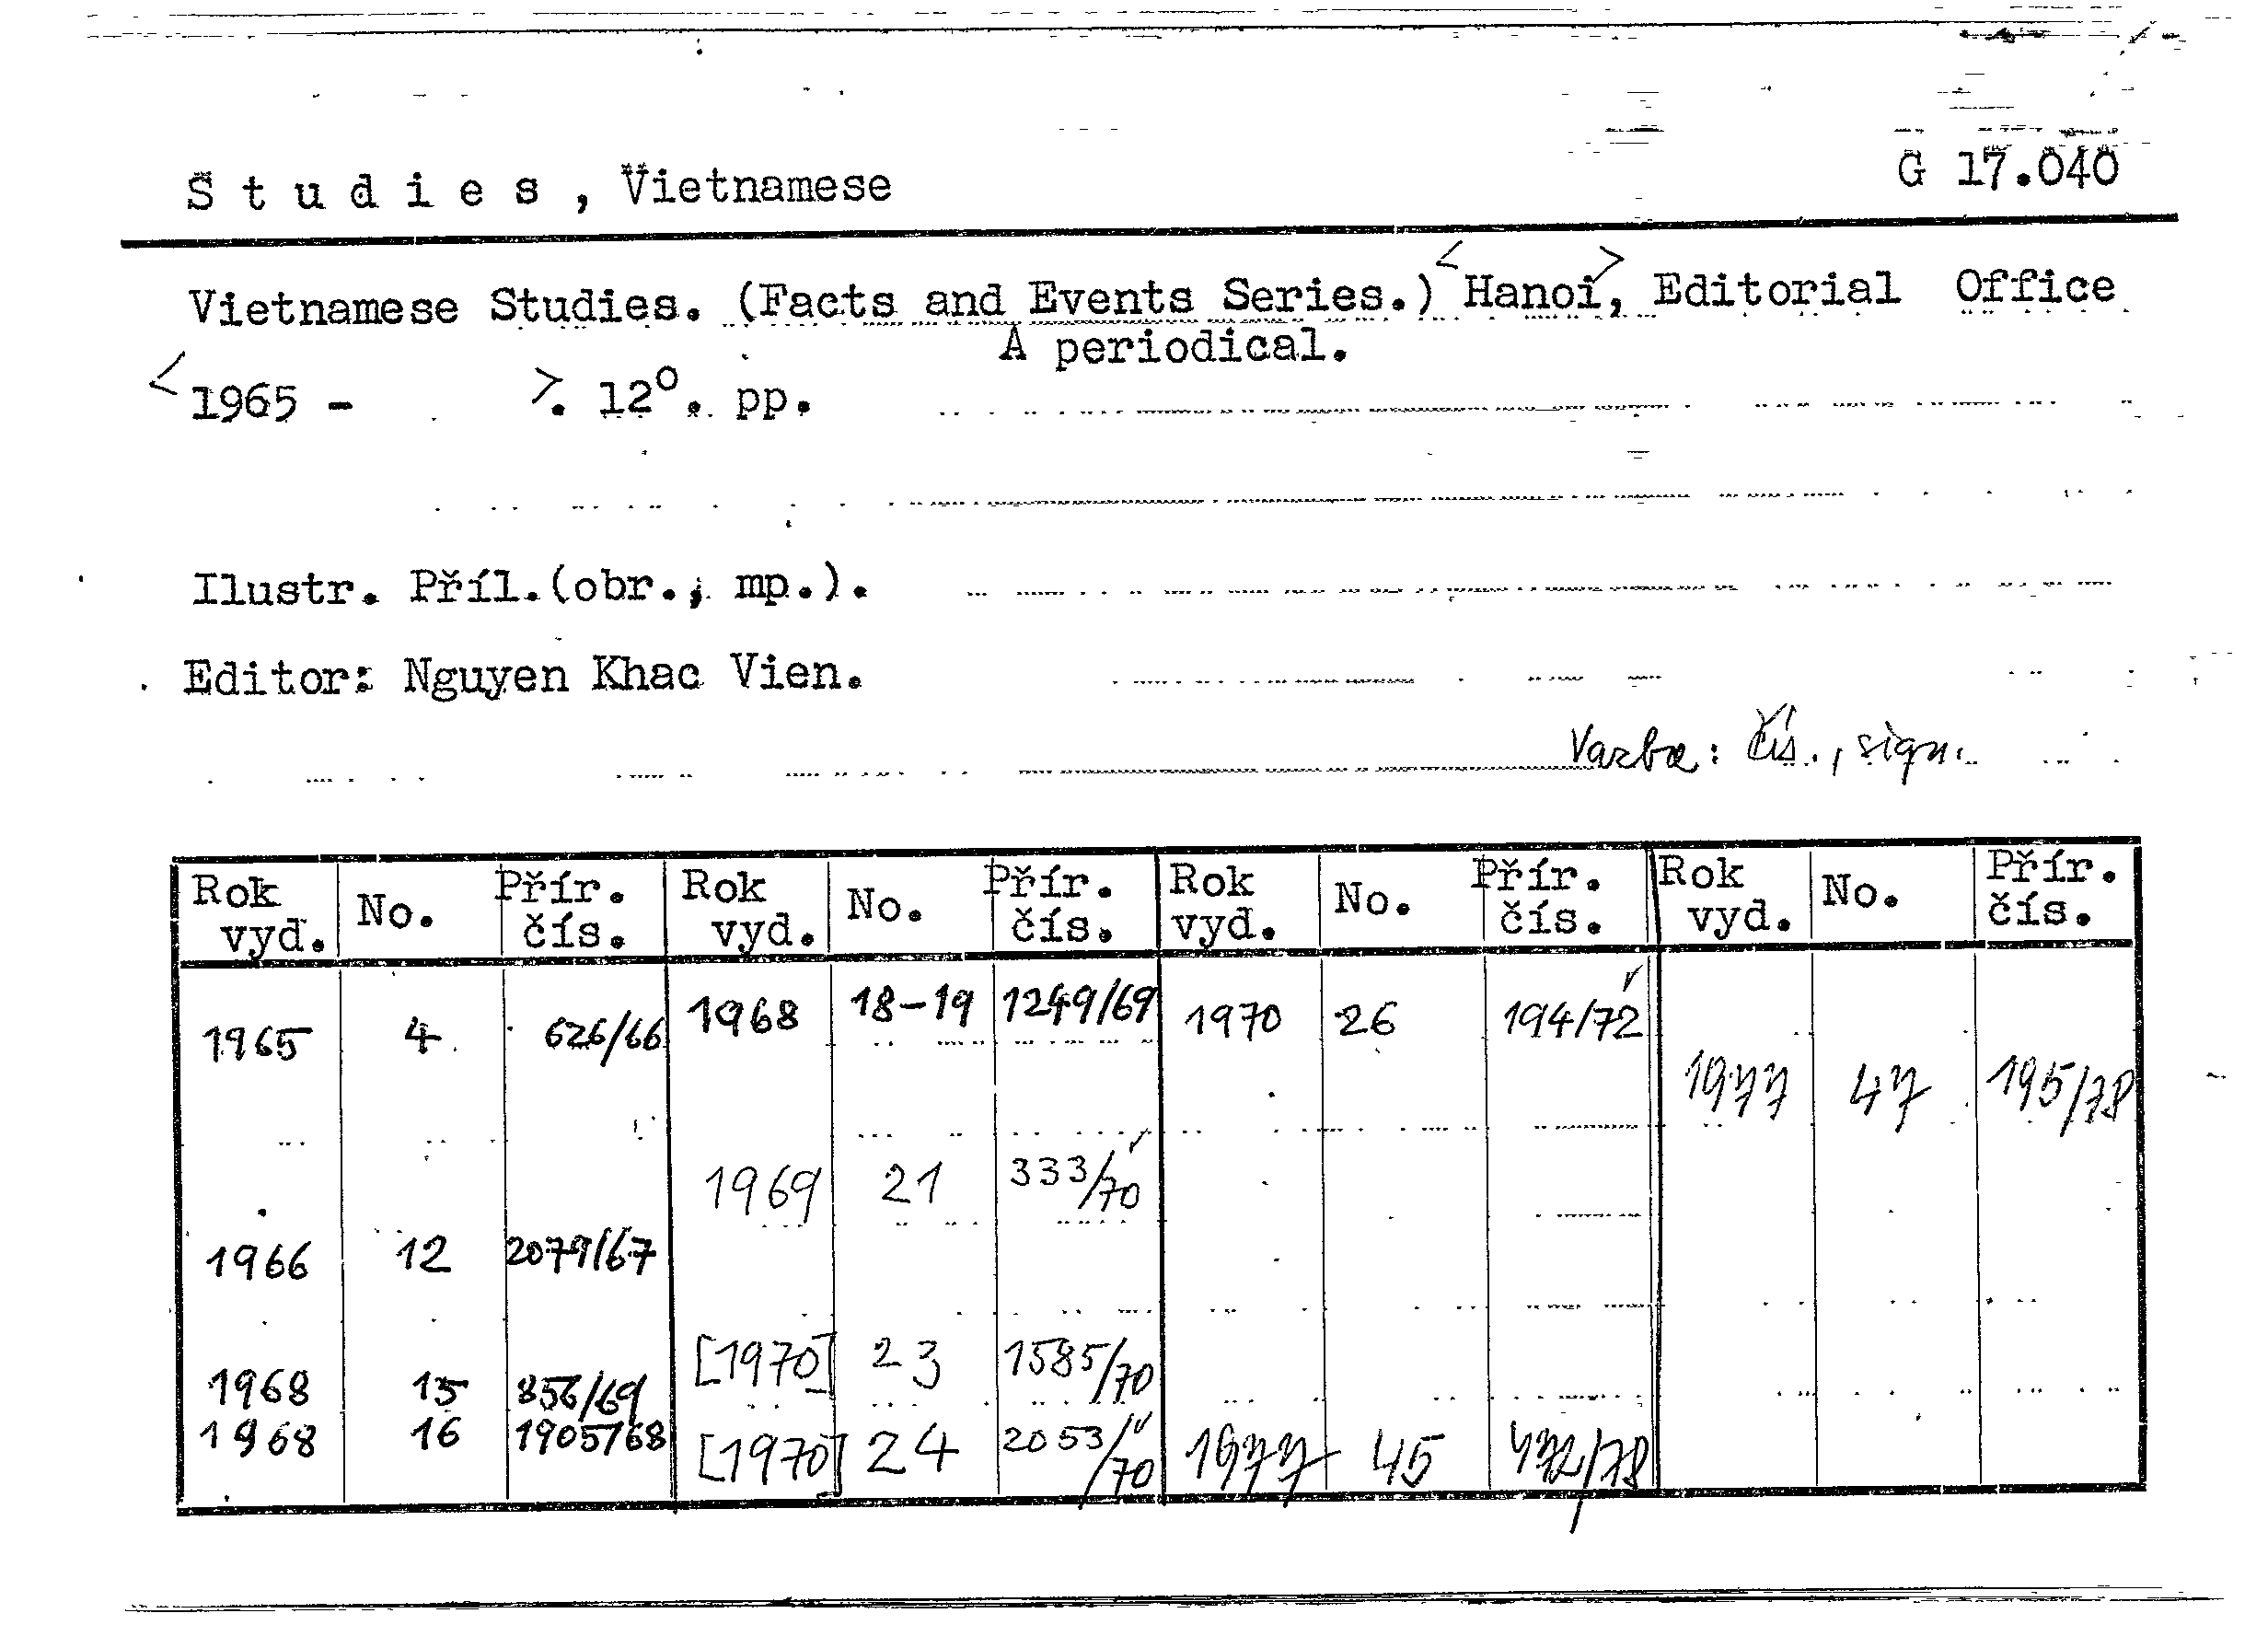 S t u d i e s , Vietnamese
G 17.040
Vietnamese Studies. (Facts and Events Series.) <Hanoi>, Editorial Office
A periodical.
<1965 - >. 12°. pp.
Ilustr. Příl.(obr., mp.).
Editor: Nguyen Khac Vien.
Vazba: čís., sign.
Rok vyd. No. Přír. čís. Rok vyd. No. Přír. čís. Rok vyd. No. Přír. čís. Rok vyd. No. Přír. čís.
1965 4 626/66 1968 18-19 1249/69 1970 26 194/72
1977 47 195/78
1969 21 333/70
1966 12 2079/67
[1970] 23 1585/70
1968 15 856/69
1968 16 1905/68 [1970] 24 2053/70 1977 45 /78